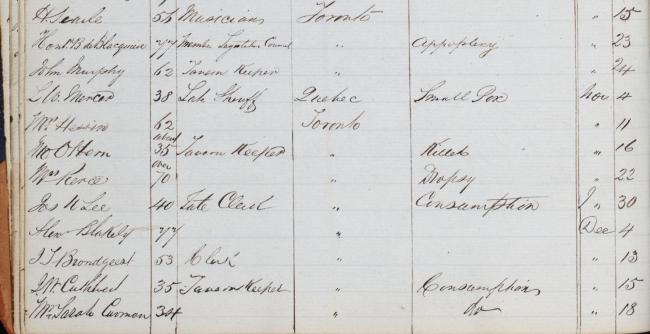 H. Searle 55 Musicians Toronto " 15
Honl. B de Blacquiere 77 Member Legislative Council " Appoplexy " 23
John Murphy 62 Tavern Keeper " " 24
38 Late Sheriff Quebec Small Pox Nov 4
Mr. Hessin 62 Toronto " 11
about
35 Tavern Keeper " Killed " 16
over
Mrs Pierce 70 " Dropsy " 22
Jas W Lee 40 Late Clerk " Consumption " 30
Blakely 77 " Dec 4
J. T. Brondgeest 53 Clerk " " 13
Cuthbert 35 Tavern Keeper " Consumption " 15
Mrs Sarah Carman 34 " do " 18